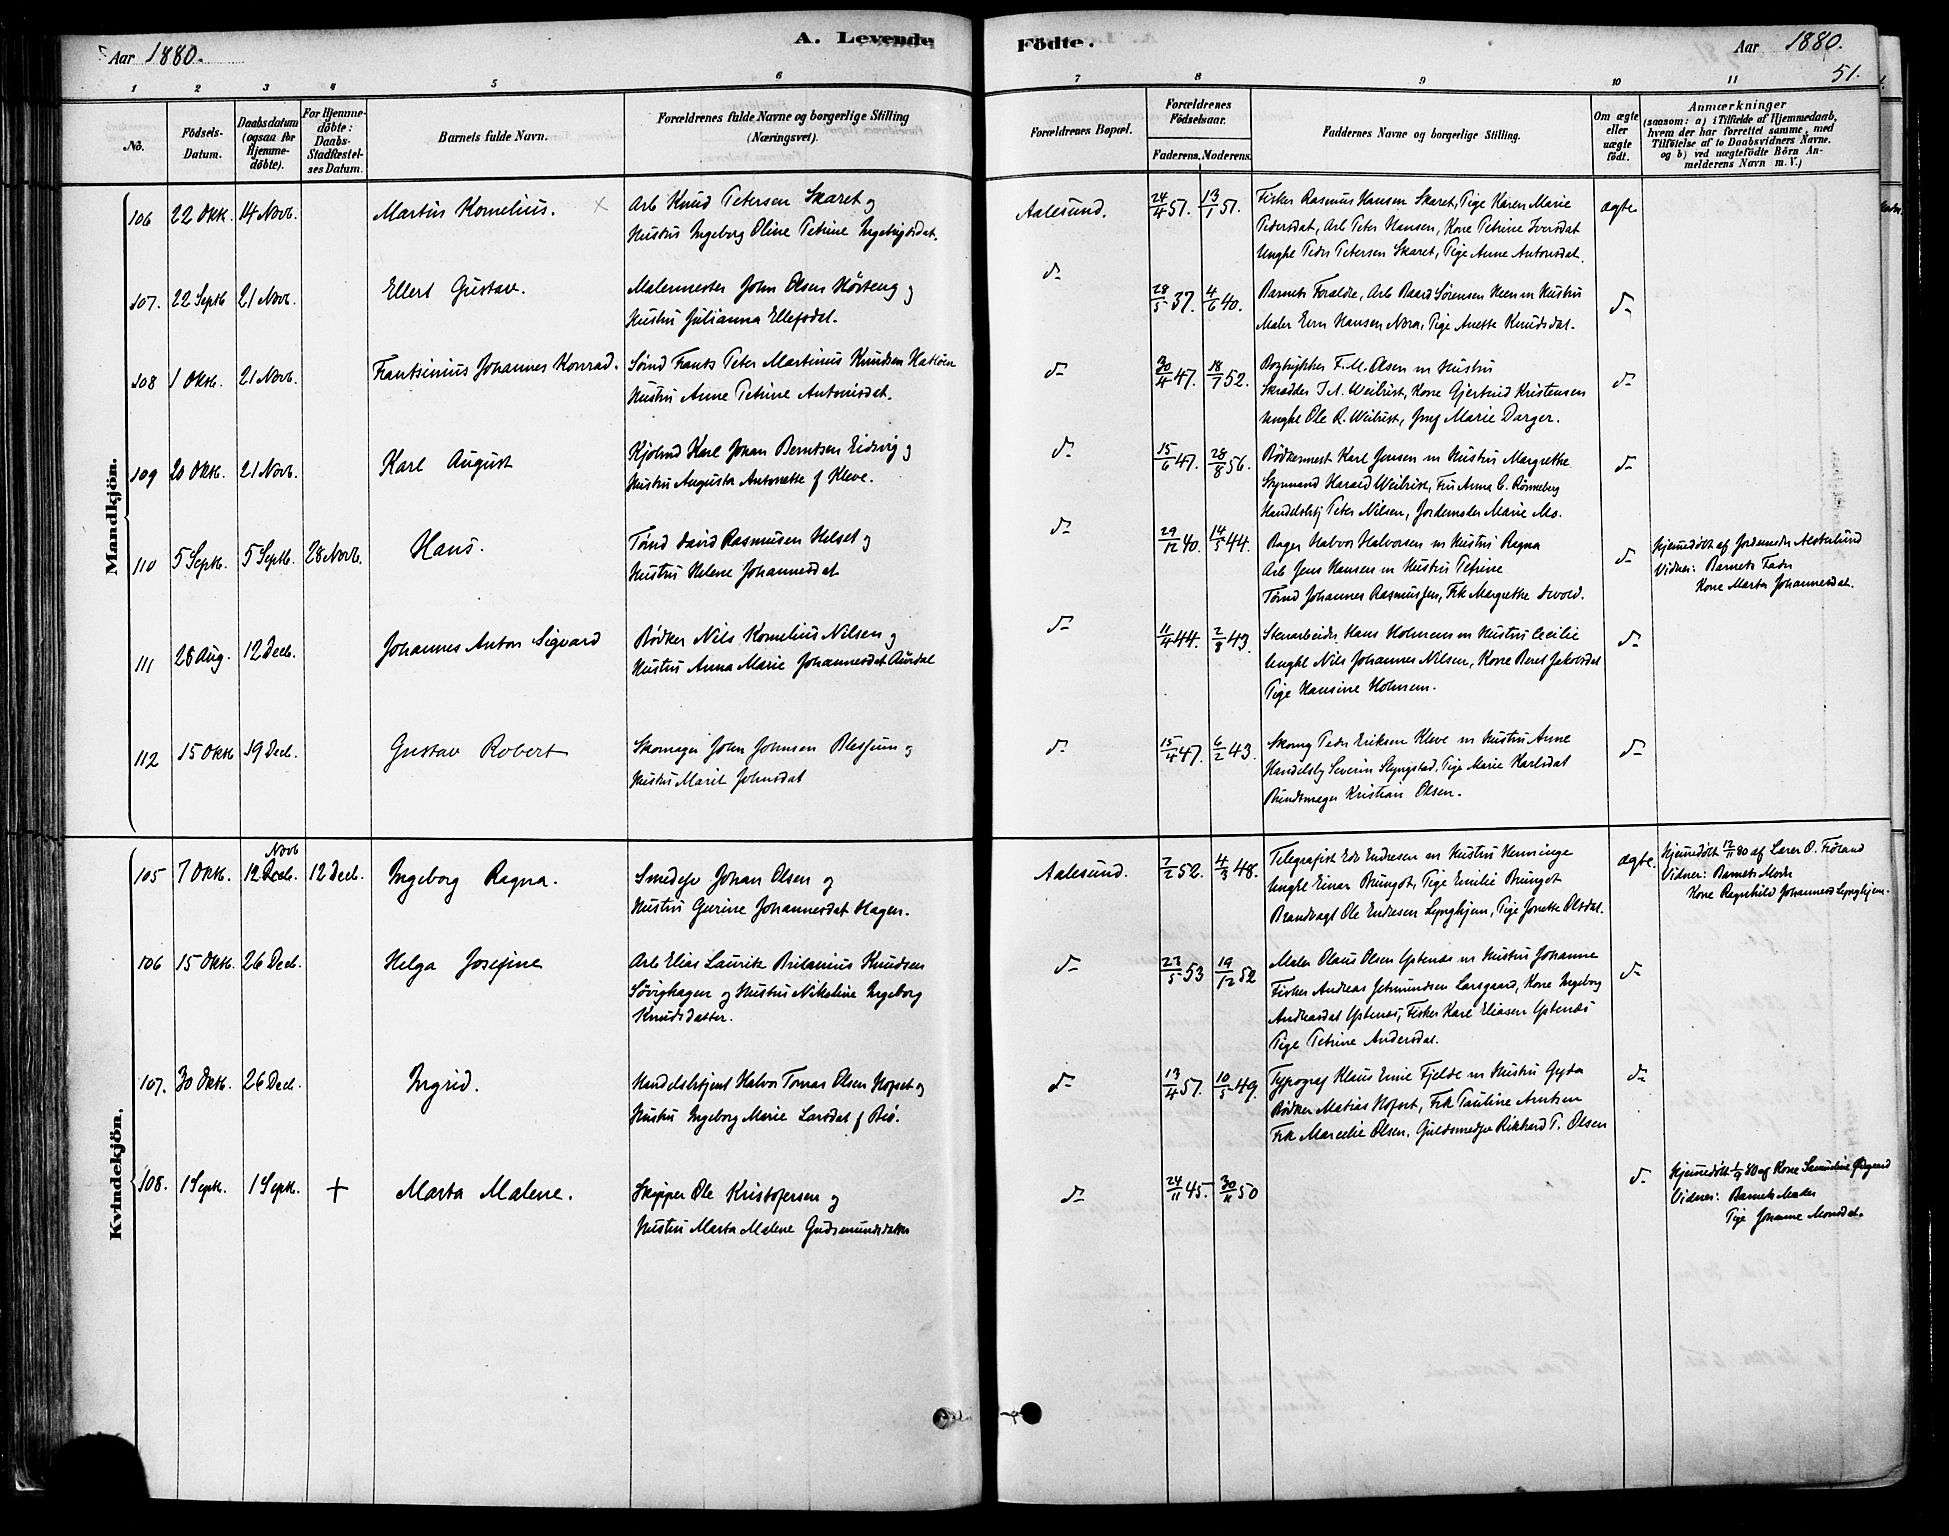 Aar 1880.
A. Levende
Födte.
Aar 1880.
51.
1 2 3 4 5 6 7 8 9 10 11
No.
Födsels-Datum.
Daabsdatum (ogsaa for Hjemme-döbte).
For Hjemme-döbte: Daabs-Stadfæstel-ses Datum.
Barnets fulde Navn.
Forældrenes fulde Navne og borgerlige Stilling (Næringsvei).
Forældrenes Bopæl.
Forældrenes Födselsaar.
Faderens. Moderens.
Faddernes Navne og borgerlige Stilling.
Om ægte eller uægte födt.
Anmærkninger
(saasom: a) i Tilfælde af Hjemmedaab, hvem der har forrettet samme, med Tilföielse af to Daabsvidners Navne. og b) ved uægtefödte Börn An-melderens Navn m.V.)
Mandkjön.
106 22 Oktb. 14 Novb. Martin Kornelius. × Arb Knud Petersen Skaret og
Hustru Ingeborg Oline Petrine Ingebrigtsdat.
Aalesund. 24/4 51. 13/1 51. Fisker Rasmus Hansen Skaret, Pige Karen Marie
Pedersdat, Arb Peter Hansen, Kone Petrine Iversdat
Ungkl Peder Petersen Skaret, Pige Anne Antonsdat.
ægte
107. 22 Septb 21 Novb. Ellert Gustav. Malermester John Olsen Hörseng og
Hustru Julianna Ellefsdat.
do 28/5 37. 4/6 40. Barnets Foraldre, Arb Baard Sörensen Heen m Hustru
Maler Even Hansen Nora, Pige Anette Knudsdat.
do
108 1 Oktb. 21 Novb. Frantsinius Johannes Konrad. Tömd Frants Peter Martinus Knudsen Hatlöen
Hustru Anne Petrine Antonisdat.
do 30/4 47. 18/7 52. Bogtrykker F. M. Olsen m Hustru
Skrædder I. A. Weibust, Kone Gjertrud Kristensen
Ungkl Ole R. Weibust, Jmf Marie Darger.
do
109 20 Oktb. 21 Novb. Karl August Kjölmd Karl Johan Berntsen Eidsvig og
Hustru Augusta Antonette f Kleve.
do 15/6 47. 28/8 56. Bödkermest Karl Jensen m Hustru Margrethe
Styrmand Harald Weibust, Fru Anna C. Rönneberg
Handelsbtj Peter Nilsen, Jordemoder Marie Mo.
do
110 5 Septb. 5 Septb. 28 Novb. Hans. Tömd David Rasmusen Helset og
Hustru Helene Johannesdat
do 29/12 40. 14/5 44. Bager Halvor Halvorsen m Hustru Ragna
Arb Jens Hansen m Hustru Petrine
Tömd Johannes Rasmussen, Frk Margrethe Devold.
do
Hjemmedöbt af Jordemoder Aesterlund
Vidner: Barnets Fader
Kone Marta Johannesdat.
111 28 Aug. 12 Decb. Johannes Anton Sigvard Bödker Nils Kornelius Nilsen og
Hustru Anna Marie Johannesdat Aursdal
do 11/4 44. 2/8 43. Stenarbeider Hans Holmem m Hustru Cecilie
Ungkl Nils Johannes Nilsen, Kone Beret Jakobsdat
Pige Hansine Holmem.
do
112 15 Oktb 19 Decb. Gustav Robert Skomager John Johnsen Blessum og
Hustru Marit Johnsdat
do 15/4 47. 6/2 43. Skomg Peder Eriksen Kleve m Hustru Anne
Handelsbtj Severin Slyngstad, Pige Marie Karlsdat
Bundtmager Kristian Olsen.
do
Kvindekjön.
105 7 Oktb. 12 Novb 12 Decb. Ingeborg Ragna. Smedsv Johan Olsen og
Hustru Gurine Johannesdat Hagen.
Aalesund. 7/2 52. 4/3 48. Telegrafist Edv Endresen m Hustru Henninge
Ungkl Einar Brungot, Pige Emilie Brungot
Brandvagt Ole Endresen Lynghjem, Pige Jonette Olsdat.
ægte.
Hjemmedöbt 12/11 80 af Lærer O. Fröland
Vidner: Barnets Moder
Kone Regnhild Johannesd Lynghjem.
106 15 Oktb. 26 Decb. Helga Josefine Arb Elias Laurits Britanius Knudsen
Sövighagen og Hustru Nikoline Ingeborg
Knudsdatter.
do 23/5 53 19/12 52 Maler Olaus Olsen Ystenæs m Hustru Johanne
Fisker Andreas Jetmundsen Larsgaard, Kone Ingeborg
Andreasdat Ystenæs, Fisker Karl Eliasen Ystenæs
Pige Petrine Andersdat.
do
107. 30 Oktb. 26 Decb. Ingrid. Handelsbtjent Halvor Tomas Olsen Hopset og
Hustru Ingeborg Marie Larsdat f Bö.
do 13/4 57. 10/5 49. Typograf Klaus Emil Fjelde m Hustru Gyda
Bödker Matias Hofset, Frk Pauline Arntsen
Frk Marcelie Olsen, Guldsmedsv Rikhard T. Olsen
do
108. 1 Septb. 1 Septb. + Marta Malene. Skipper Ole Kristofersen og
Hustru Marta Malene Gudsmundsdatter
do 24/11 45. 30/11 50
do
Hjemmedöbt 1/9 80 af Kone Samueline Ödegaard
Vidner: Barnets Moder
Pige Johanne Monsdat.